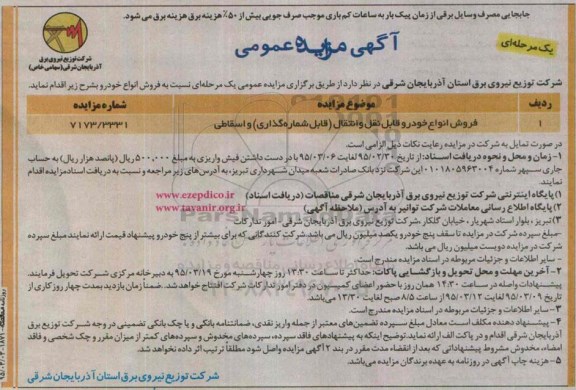 جابجایی مصرف وسایل برقی از زمان پیک بار به ساعات کم باری موجب صرف جویی بیش از ۵۰٪ هزینه برق هزینه برق می شود.
شرکت توزیع نیروی برق
آذربایجان شرقی (سهامی خاص)
آگهی مزایده عمومی
یک مرحله‌ای
شرکت توزیع نیروی برق استان آذربایجان شرقی در نظر دارد از طریق برگزاری مزایده عمومی یک مرحله‌ای نسبت به فروش انواع خودرو بشرح زیر اقدام نماید.
ردیف موضوع مزایده شماره مزایده
۱ فروش انواع خودرو قابل نقل وانتقال (قابل شماره گذاری) و اسقاطی ۷۱۷۳/۳۳۳۱
در صورت تمایل به شرکت در مزایده رعایت نکات ذیل الزامی است.
۱- زمان و محل و نحوه دریافت اسناد: از تاریخ ۹۵/۰۲/۳۰ لغایت ۹۵/۰۳/۰۶ با در دست داشتن فیش واریزی به مبلغ ۵۰۰,۰۰۰ ریال (پانصد هزار ریال) به حساب
جاری سپهر شماره ۰۱۰۱۸۰۵۹۶۳۰۰۴ این شرکت نزد بانک صادرات شعبه میدان شهرداری تبریز، به آدرس های زیر مراجعه و نسبت به دریافت اسناد مزایده اقدام
نمایند.
۱) پایگاه اینترنتی شرکت توزیع نیروی برق آذربایجان شرقی مناقصات (دریافت اسناد) www.ezepdico.ir
۲) پایگاه اطلاع رسانی معاملات شرکت توانیر به آدرس (ملاحظه آگهی) www.tavanir.org.ir
۳) تبریز، بلوار استاد شهریار، خیابان گلکار، شرکت توزیع نیروی برق آذربایجان شرقی، امور تدارکات
-مبلغ سپرده شرکت در مزایده تا سقف پنج خودرو یکصد میلیون ریال می باشد شرکت کنندگانی که برای بیشتر از پنج خودرو پیشنهاد قیمت ارائه نمایند مبلغ سپرده
شرکت در مزایده دویست میلیون ریال می باشد.
- سایر اطلاعات و جزئیات مربوطه در اسناد مزایده مندرج است.
۲- آخرین مهلت و محل تحویل و بازگشایی پاکات: حداکثر تا ساعت ۱۳:۳۰ (روز چهارشنبه مورخ ۹۵/۰۳/۱۹ به دبیرخانه مرکزی شرکت تحویل فرمایند.
پیشنهادات واصله در ساعت ۱۴:۳۰ همان روز با حضور اعضای کمیسیون در دفتر امور تدارکات شرکت افتتاح خواهد شد. ضمناً زمان بازدید بمدت چهار روز کاری از
تاریخ ۹۵/۰۳/۰۹ لغایت ۹۵/۰۳/۱۲ از ساعت ۸/۵ صبح لغایت ۱۳/۳۰ می باشد.
۳- سایر اطلاعات و جزئیات مربوطه در اسناد مزایده مندرج است.
۴- پیشنهاد دهنده مکلف است معادل مبلغ سپرده تضمین‌های معتبر از جمله واریز نقدی، ضمانتنامه بانکی و یا چک بانکی تضمینی در وجه شرکت توزیع برق
آذربایجان شرقی اقدام و در پاکت الف ارائه نماید. توضیح اینکه به پیشنهادهای فاقد سپرده، سپرده‌های مخدوش و سپرده‌های کمتر از میزان مقرر و چک شخصی و فاقد
امضاء، مخدوش مشروط پیشنهاداتی که بعد از انقضاء مدت مقرر در بند ۲ آگهی مزایده واصل شود مطلقاً ترتیب اثر داده نخواهد شد.
۵- هزینه چاپ آگهی در روزنامه به عهده برندگان مزایده می‌باشد.
شرکت توزیع نیروی برق استان آذربایجان شرقی